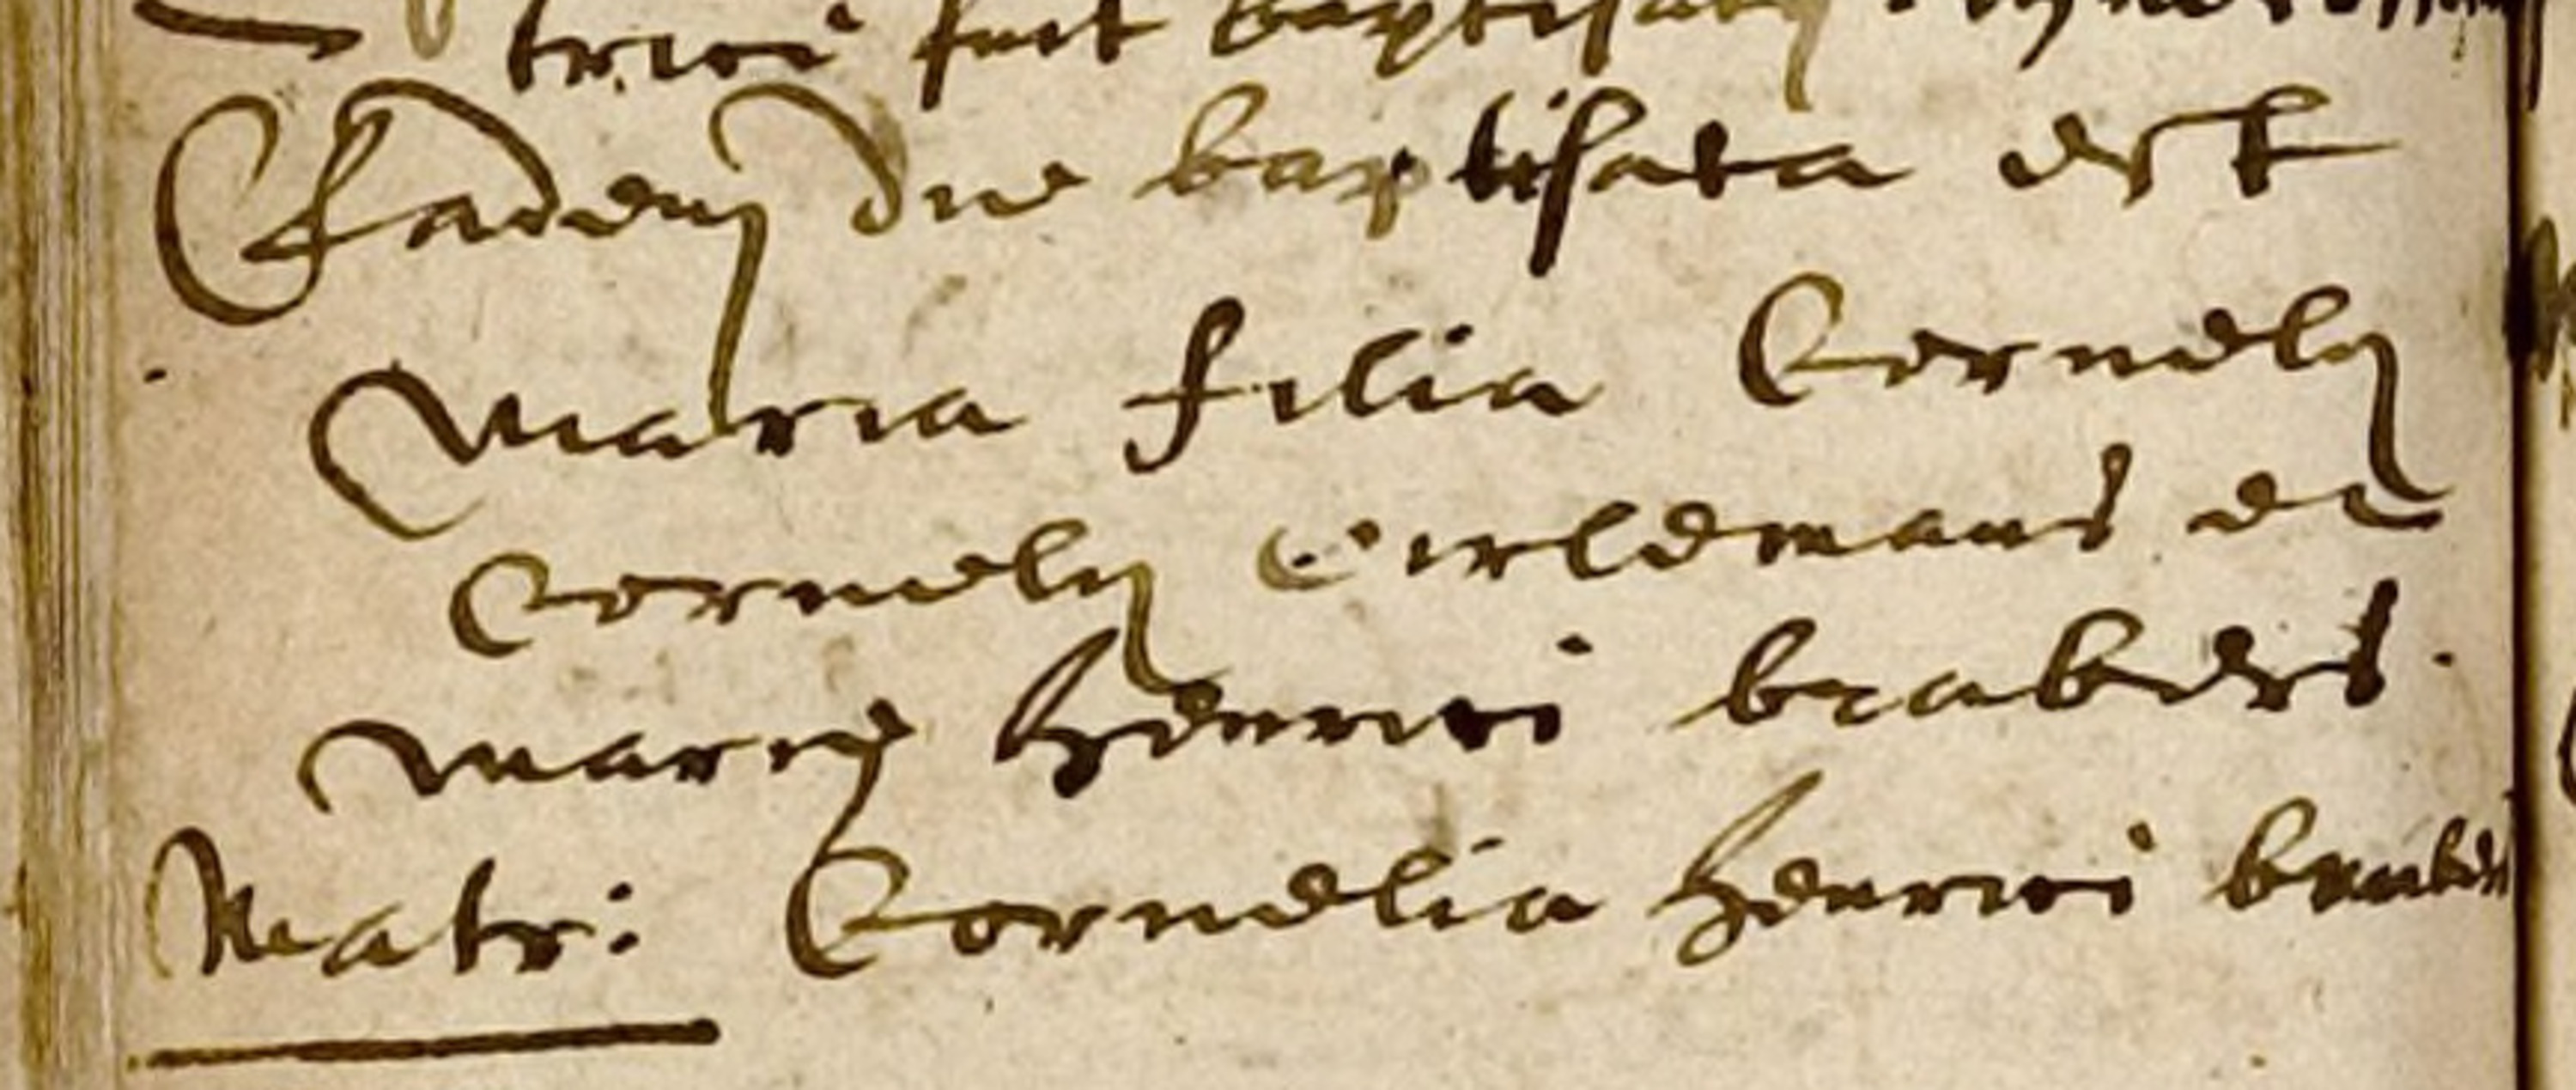 trici fuit baptisatus
Eadem die baptisata est
Maria filia Cornelij
Cornelij eirldmans et
Marie Henrici brabers.
Matr: Cornelia Henrici brabers